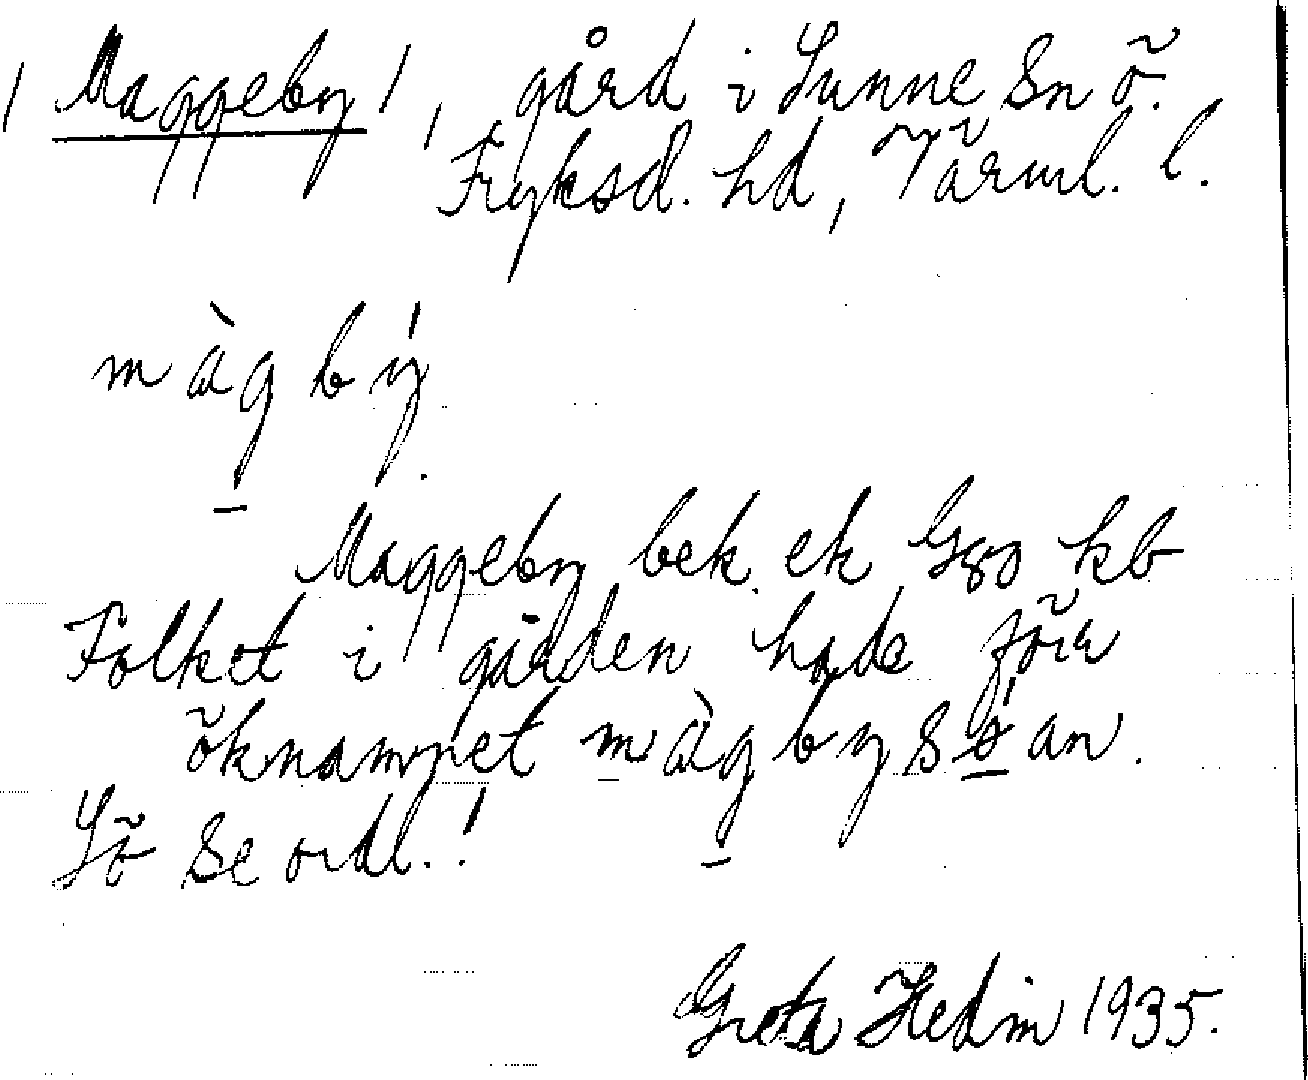 / Maggeby /, gård i Sunne Sn ö.
Fryksd. hd, Värml. l.
màg bý
Maggeby bek. ek kb
Folket i gården hade förr
öknamnet màg by s an.
Sö Se ordl.!
Greta Hedin 1935.